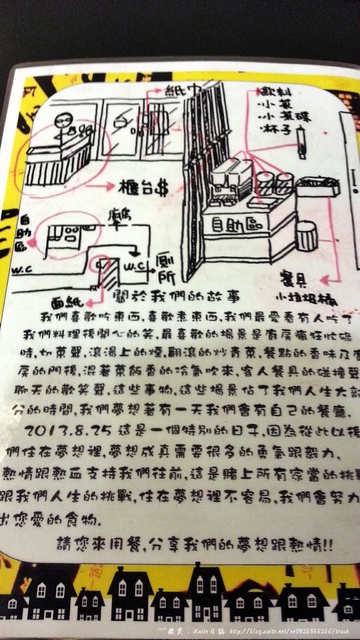 紙巾
飲料
小菜
小菜碟
杯子
櫃台$
自助區
自助區
廚房
w.c
w.c
廁所
面紙
餐具
小垃圾桶
關於我們的故事
我們喜歡吃東西,喜歡煮東西,我們最愛看有人吃了
我們料理後開心的笑,最喜歡的場景是廚房瘋狂忙碌
時,切菜聲,滾湯上的煙,翻滾的炒青菜,餐點的香味及
房的門後,混著菜飯香的冷氣吹來,客人餐具的碰撞聲
聊天的歡笑聲,這些事物,這些場景佔了我們人生大
分的時間,我們夢想著有一天我們會有自己的餐廳.
2013.8.25 這是一個特別的日子,因為從此以後
們住在夢想裡,夢想成真需要很多的勇氣跟努力,
熱情跟熱血支持我們往前,這是賭上所有家當的挑
跟我們人生的挑戰,住在夢想裡不容易,我們會努力
出您愛的食物.
請您來用餐,分享我們的夢想跟熱情!!